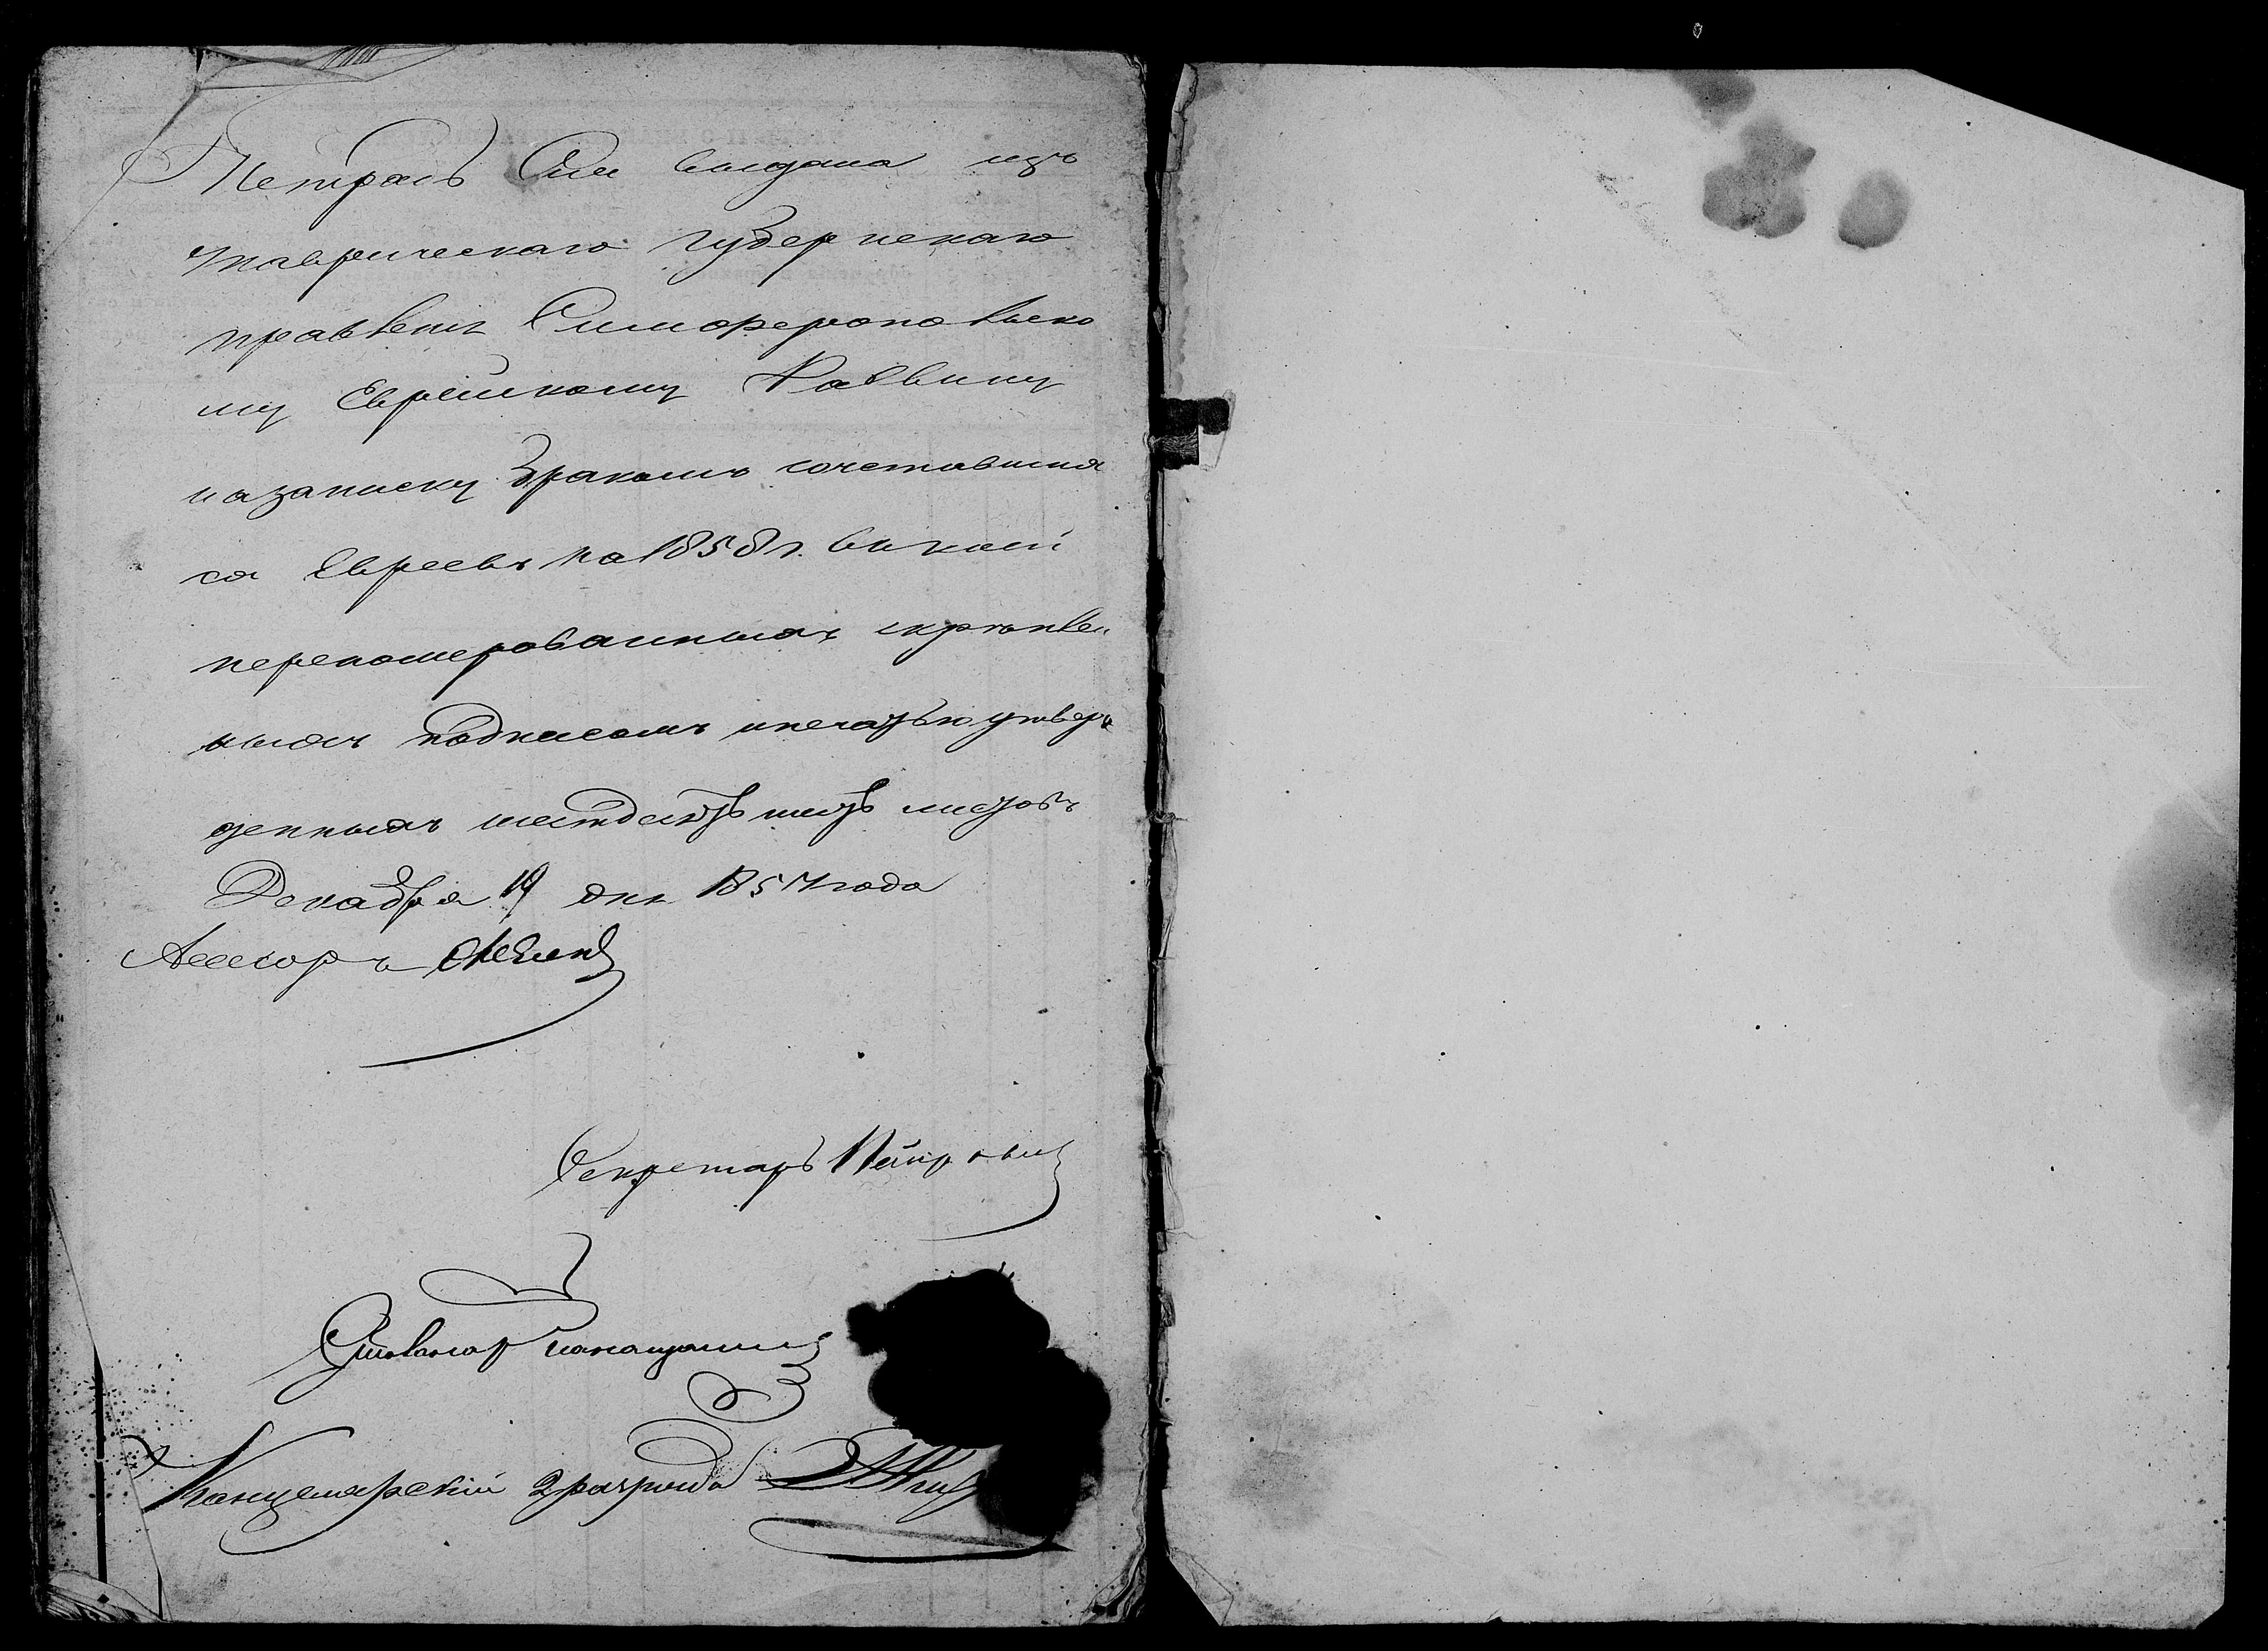 Тетрадь Сия выдана изъ
Таврическаго Губернскаго
правленія Симферопольско
му Еврейскому Раввину
на записку Бракомъ сочетавших
ся Евреевъ на 1858 г. въ ней
переномерованныхъ скрѣплен
ныхъ подписомъ и печатью утверж
денныхъ шестдесятъ шесть листовъ
Декабря 19 дня 1857 года
Ассесоръ
Секретарь
Канцелярскій 2 разряда